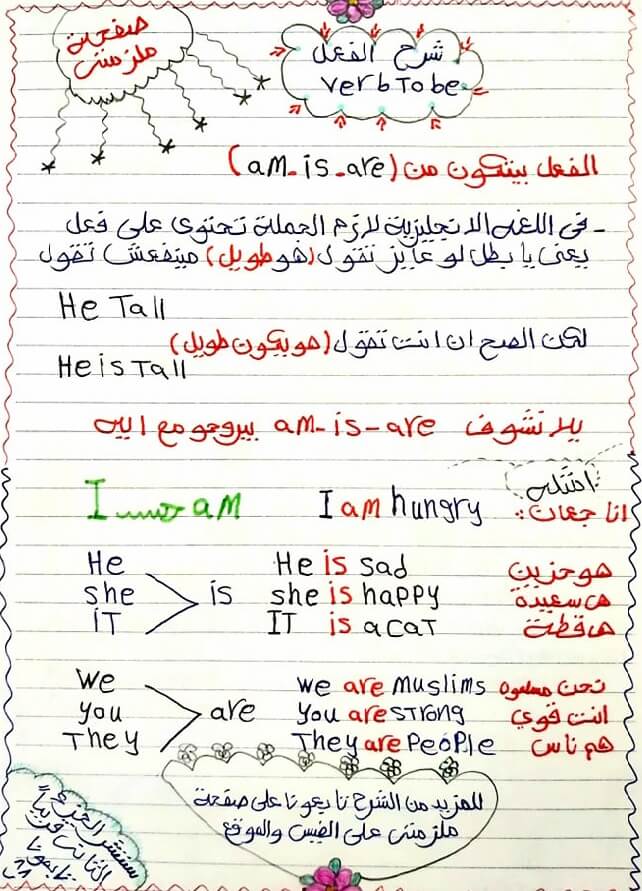 صفحة
ملزمتى
شرح الفعل
verb To be
الفعل بيتكون من (am - is - are)
- فى اللغه الانجليزية لازم الجملة تحتوى على فعل
يعنى يا بطل لو عايز تقول (هو طويل) مينفعش تقول
He Tall
لكن الصح ان انت تقول (هو بيكون طويل)
He is Tall
يلا نشوف am - is - are بيروحو مع اليه
امثله
I am I am hungry انا جعان:
He He is sad هو حزين
she is she is happy هى سعيدة
iT IT is a caT ها قطة
we we are muslims نحن مسلمون
you are you are strong انت قوي
They They are People هم ناس
للمزيد من الشرح تابعونا على صفحة
ملزمتى على الفيس والموقع
سننشر الجزء
الثانى قريباً
تابعونا